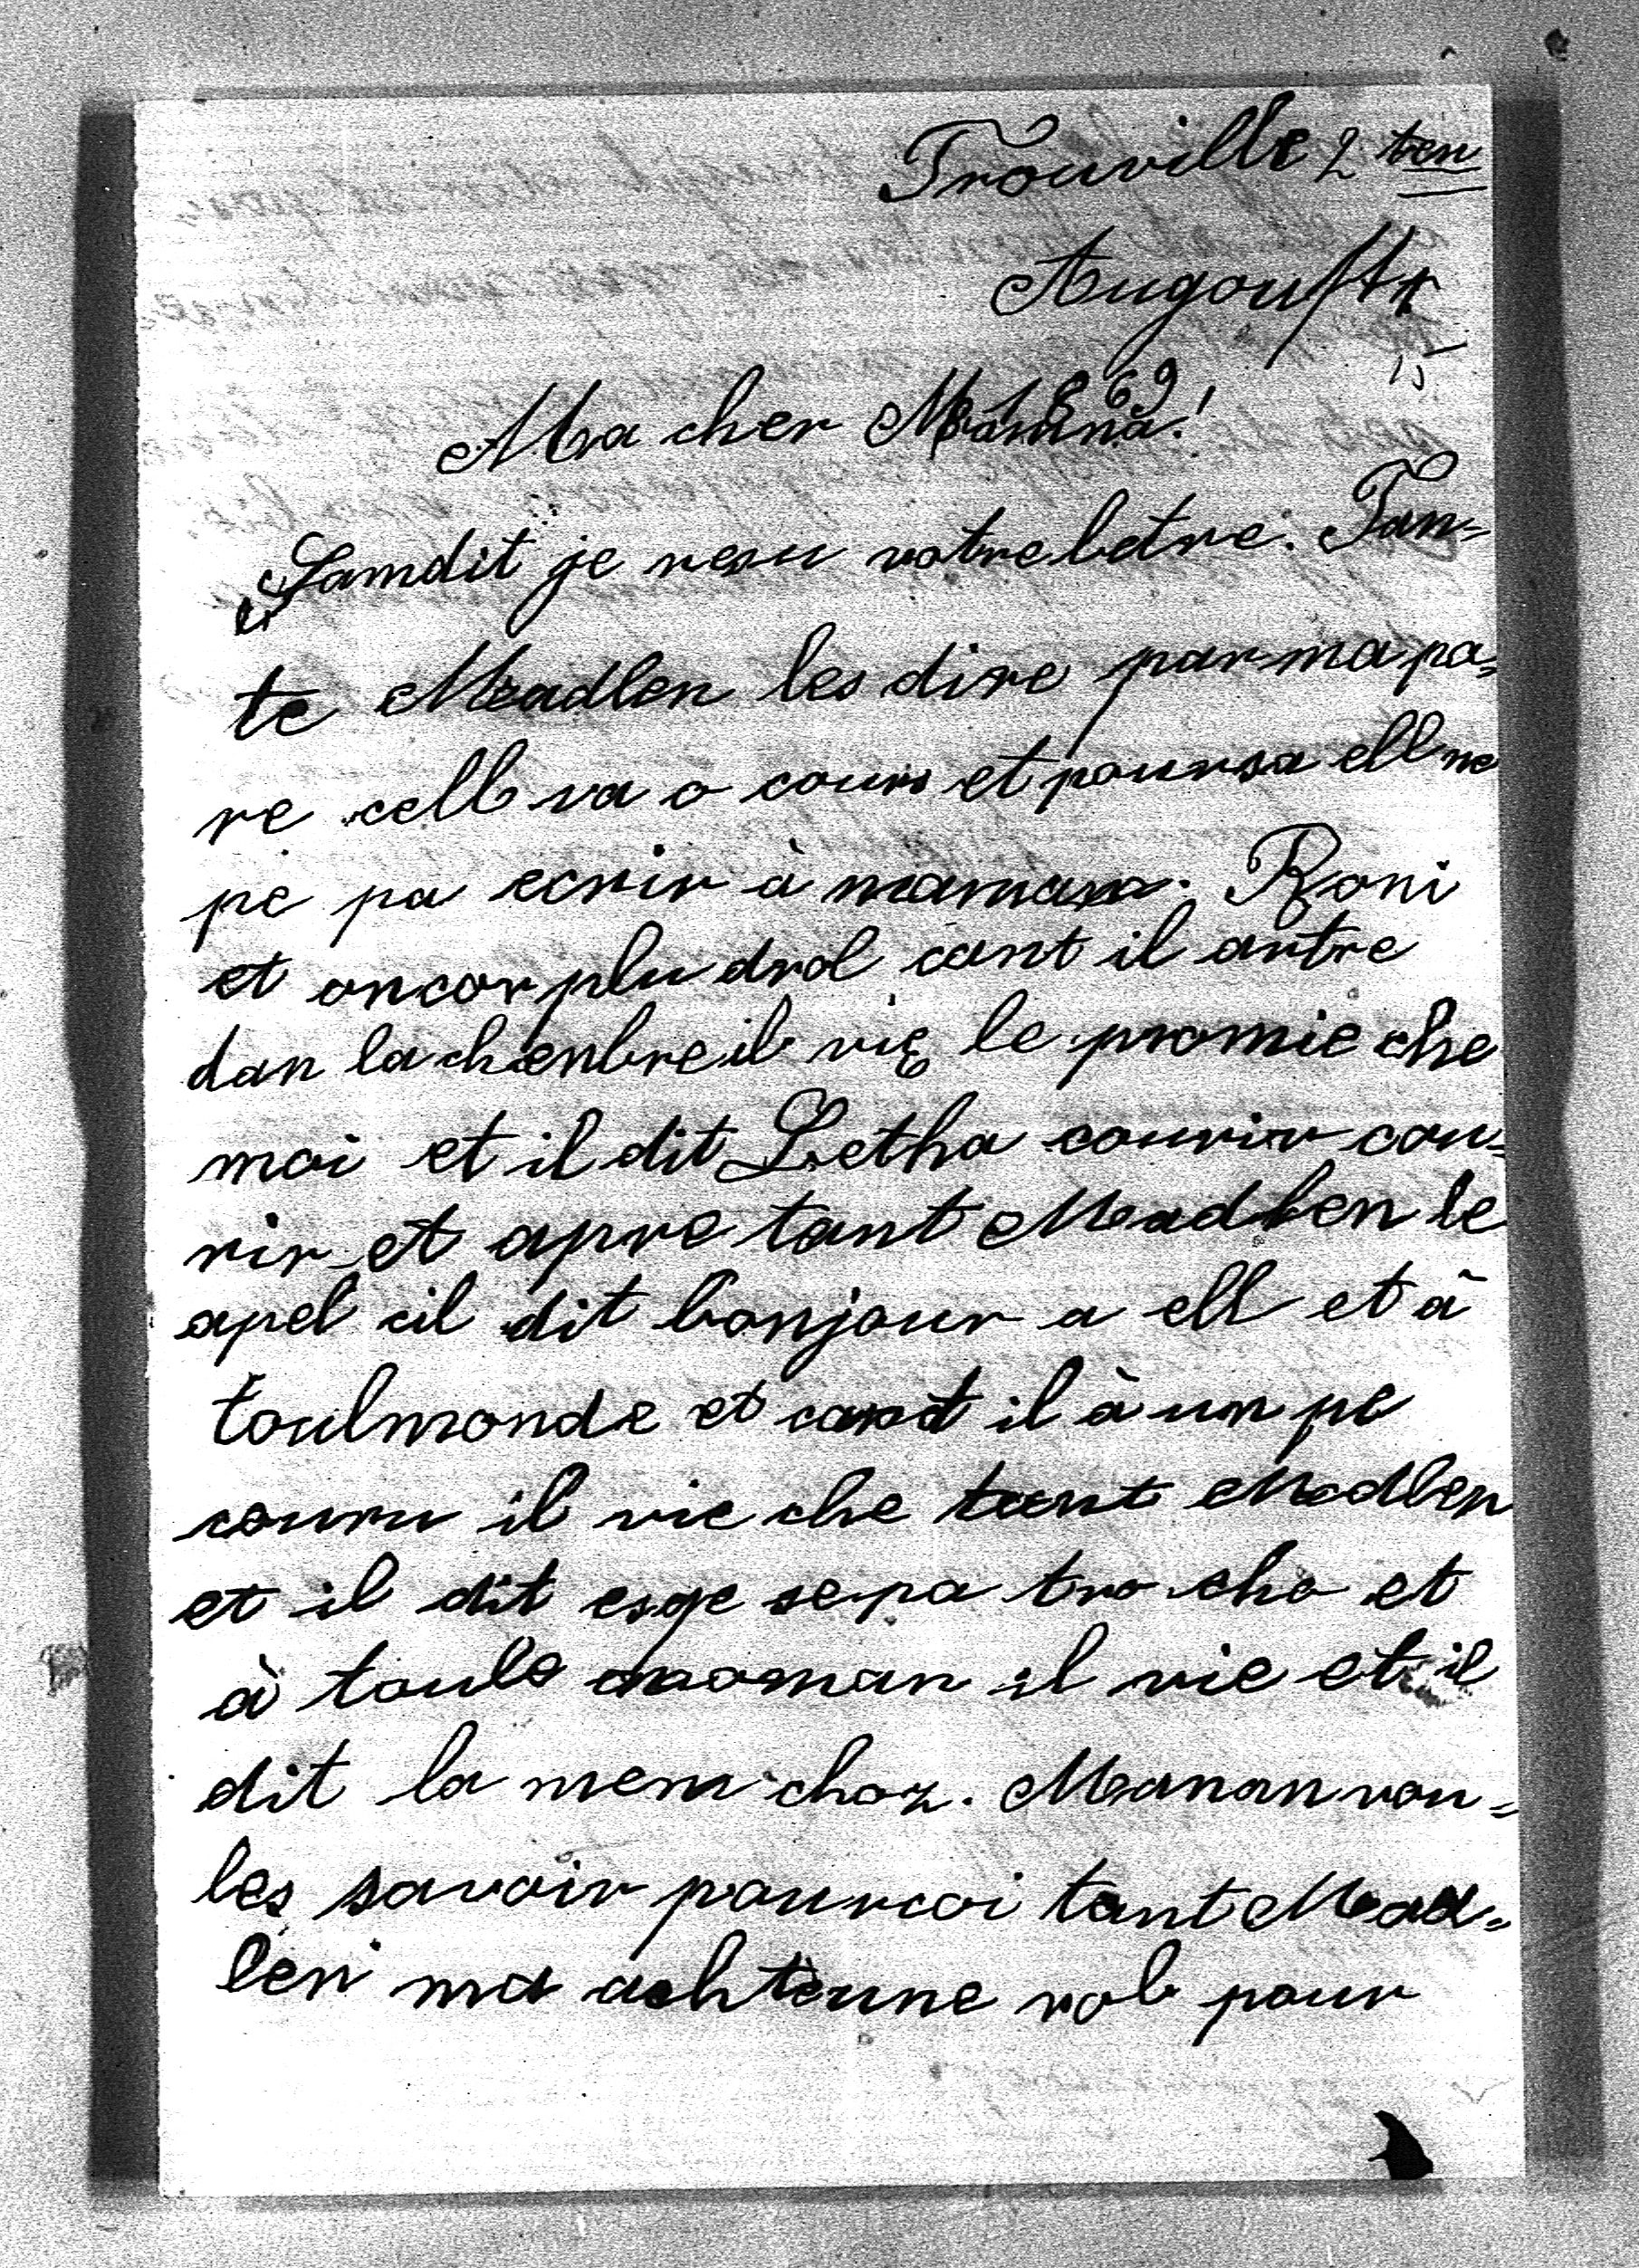 Trouville 2 ten
Augouste
1869
Ma cher Mamna!
Samdit je resu votre letre. Tan-
te Madlen les dire par ma pa-
re cell va o cours et poursa ell ne
pe pa ecrir à maman. Roni
et oncor plu drol cant il antre
dan la chenbre il vie le promie che
moi et il dit Letha courir cou-
rir et apre tant Madlen le
apel cil dit bonjour a ell et à
toulmonde et cant il à un pe
couru il vie che tant Madlen
et il dit esqe se pa tro cho et
à toule moman il vie et il
dit la mem choz. Manan vou-
les savoir pourcoi tant Mad-
len ma achte une rob pour